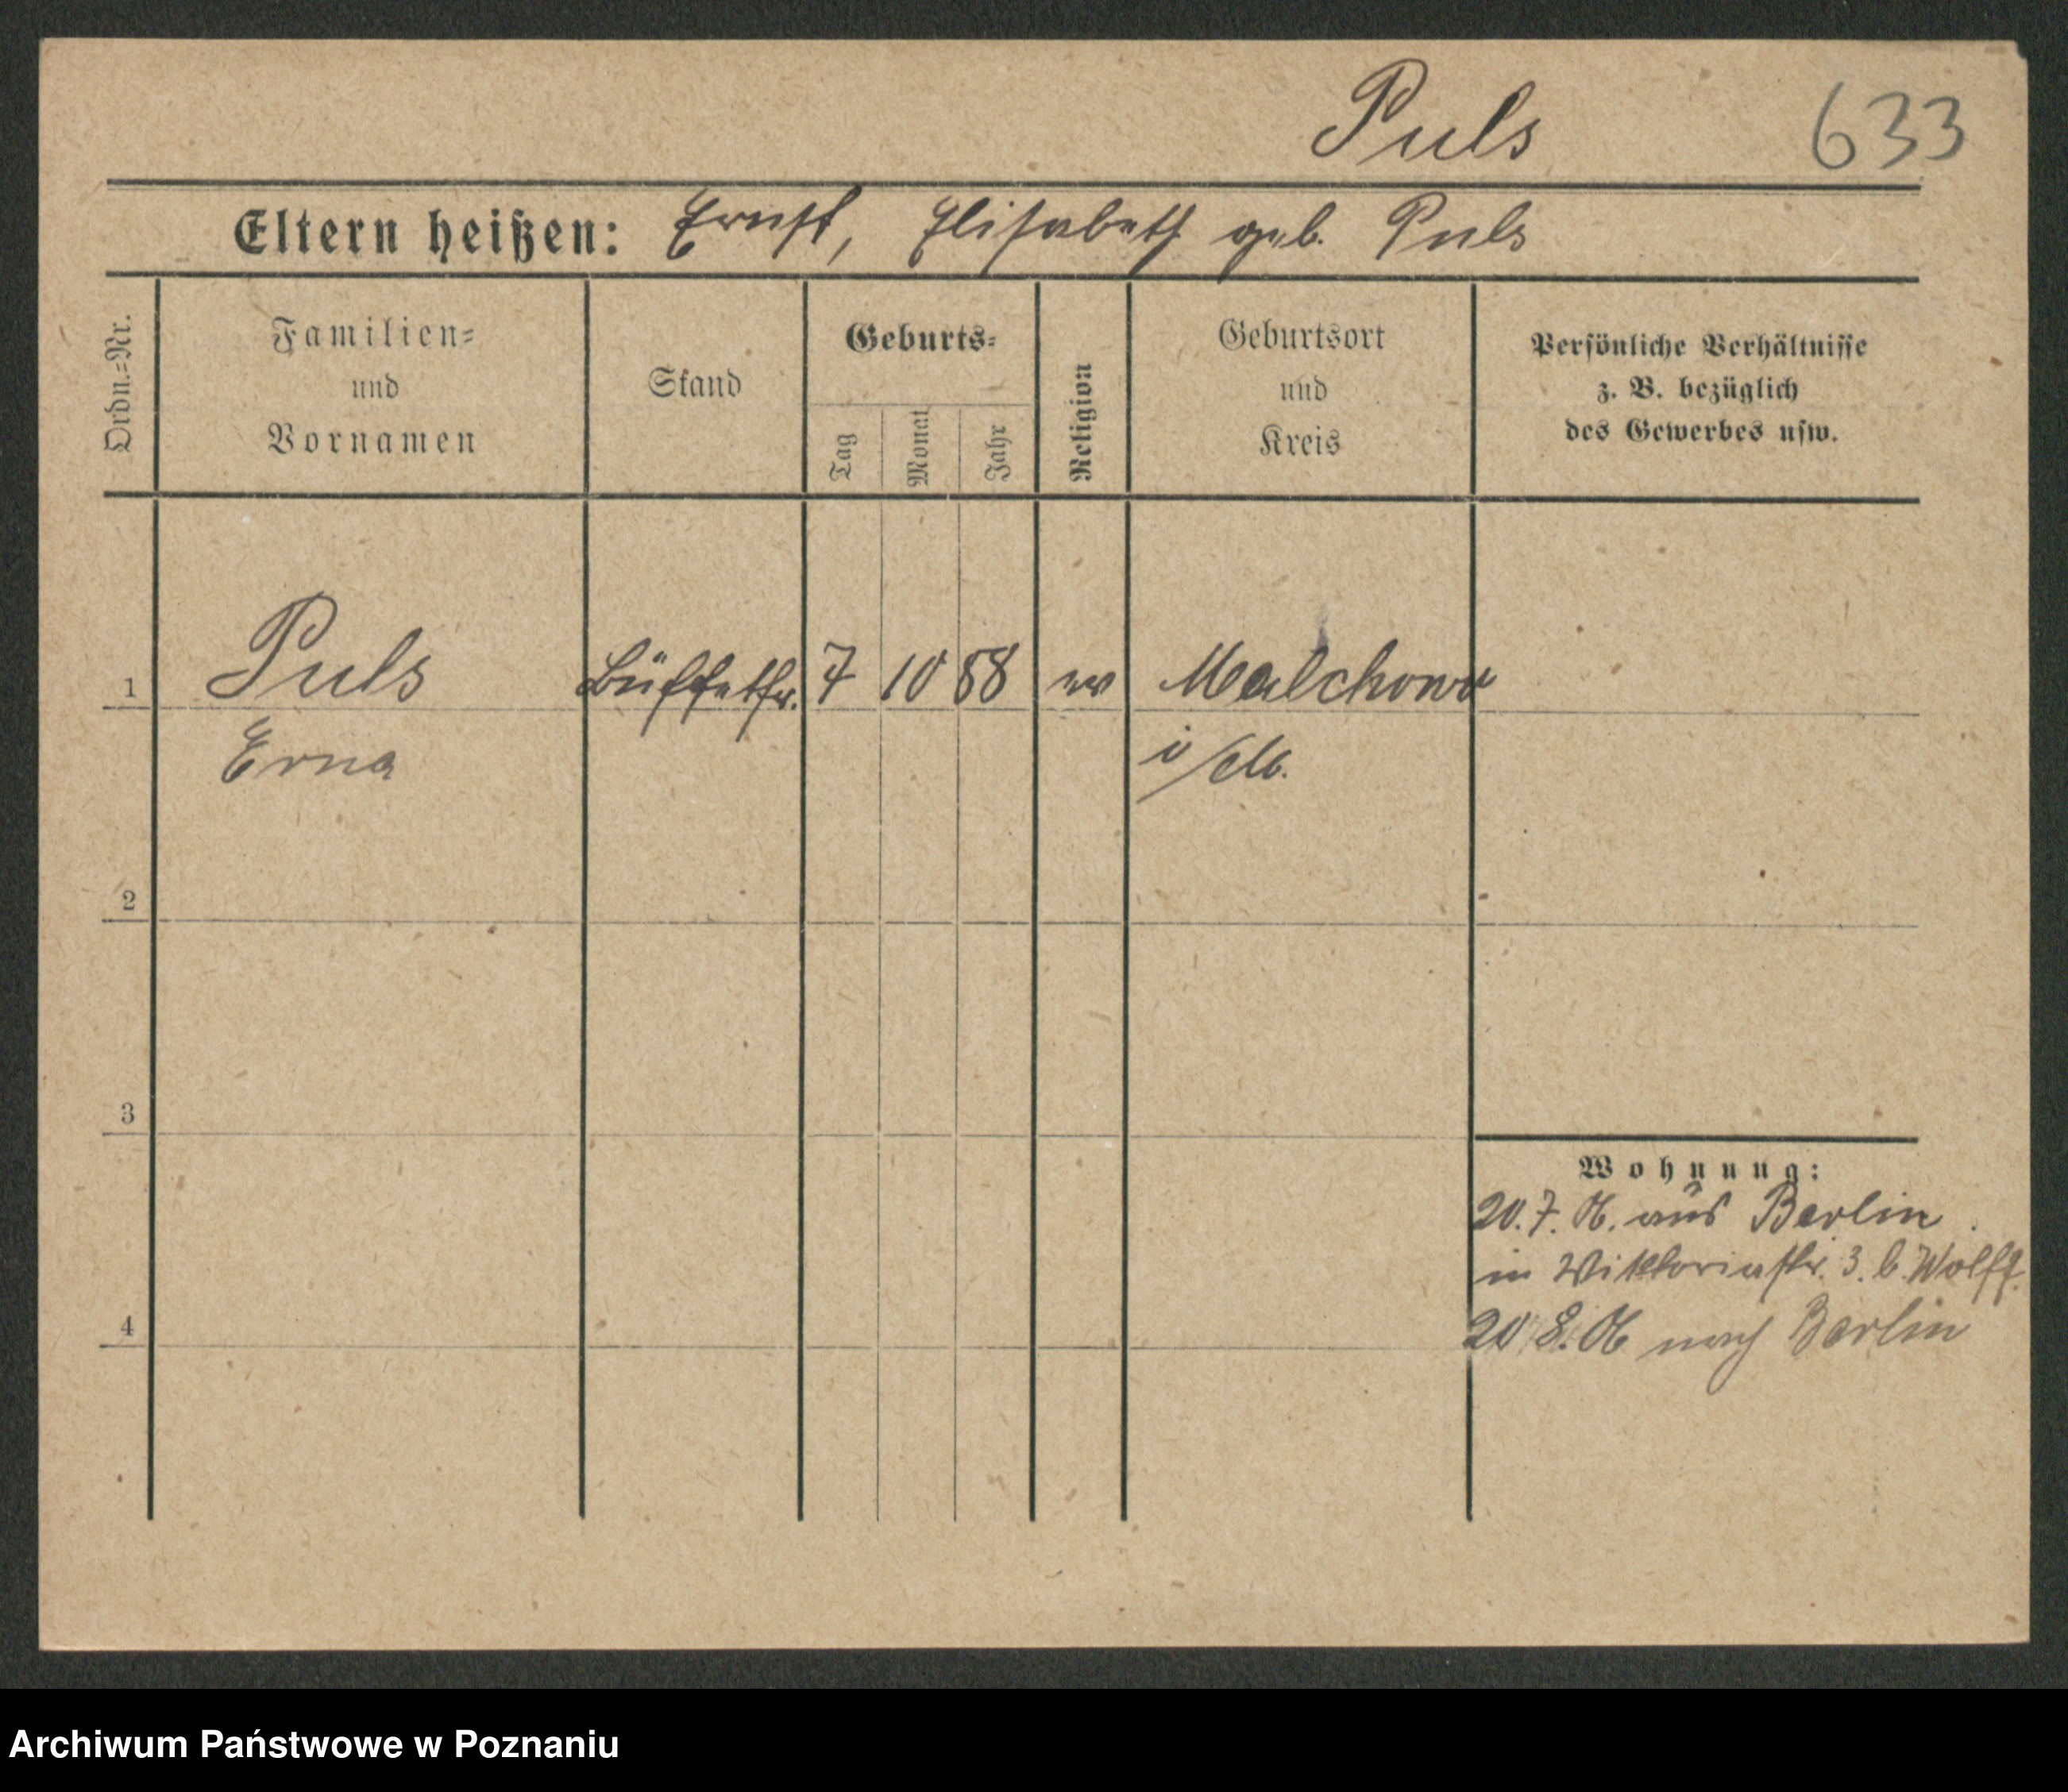 Puls 633
Eltern heißen: Ernst, Elisabeth geb. Puls
Ordn.=Nr.
Familien=
und
Vornamen
Stand
Geburts=
Tag
Monat
Jahr
Religion
Geburtsort
und
Kreis
Persönliche Verhältnisse
z. B. bezüglich
des Gewerbes usw.
1 Puls Büffettfr. 7 10 88 ev Malchow
Erna i/Mb.
2
3
Wohnung:
20.7.06. aus Berlin
in Viktoriastr. 3. b. Wolff.
4
20 8.06 nach Berlin
Archiwum Państwowe w Poznaniu